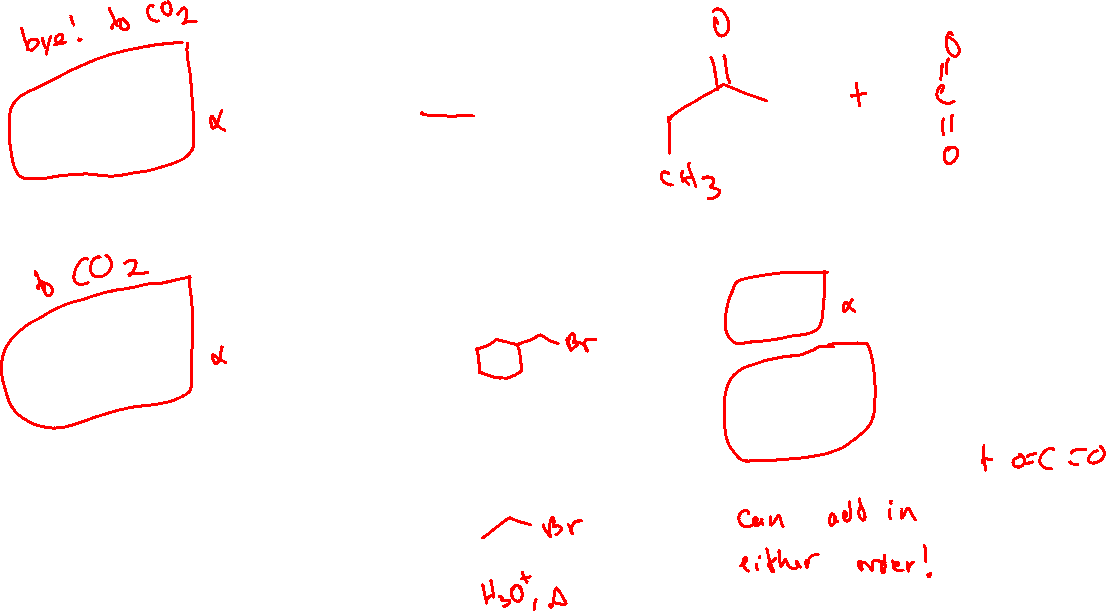 bye! to CO2
α
O
CH3
+
O
C
O
to CO2
α
Br
α
+ O=C=O
Br
H3O+, Δ
can add in
either order!